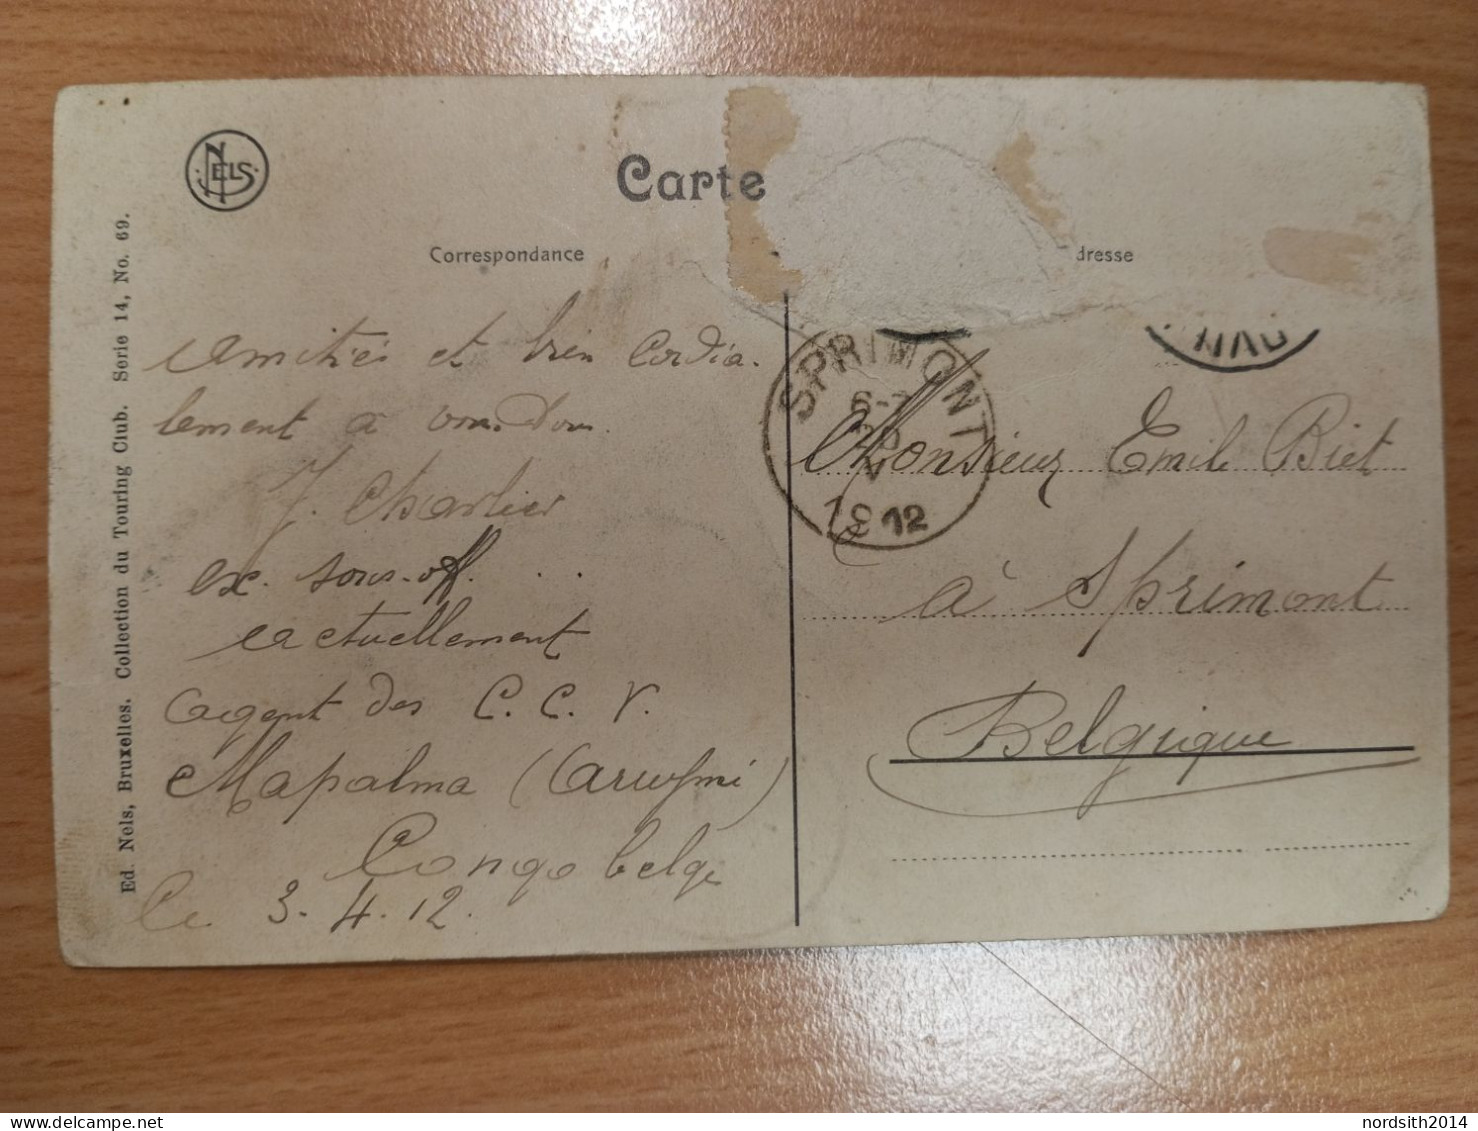 NELS
Carte
Correspondance
dresse
Ed. Nels, Bruxelles. Collection du Touring Club. Serie 14, No. 69.
amitiés et bien cordia-
lement à vous.
J. Charlier
ex. sous-off. ..
actuellement
agent des C. C. V.
Mapalma (Aruwimi)
Congo belge
Le 3-4-12.
SPRIMONT
6-7
20
V
1912
Monsieur Emile Biet
à Sprimont
Belgique
delcampe.net
nordsith2014